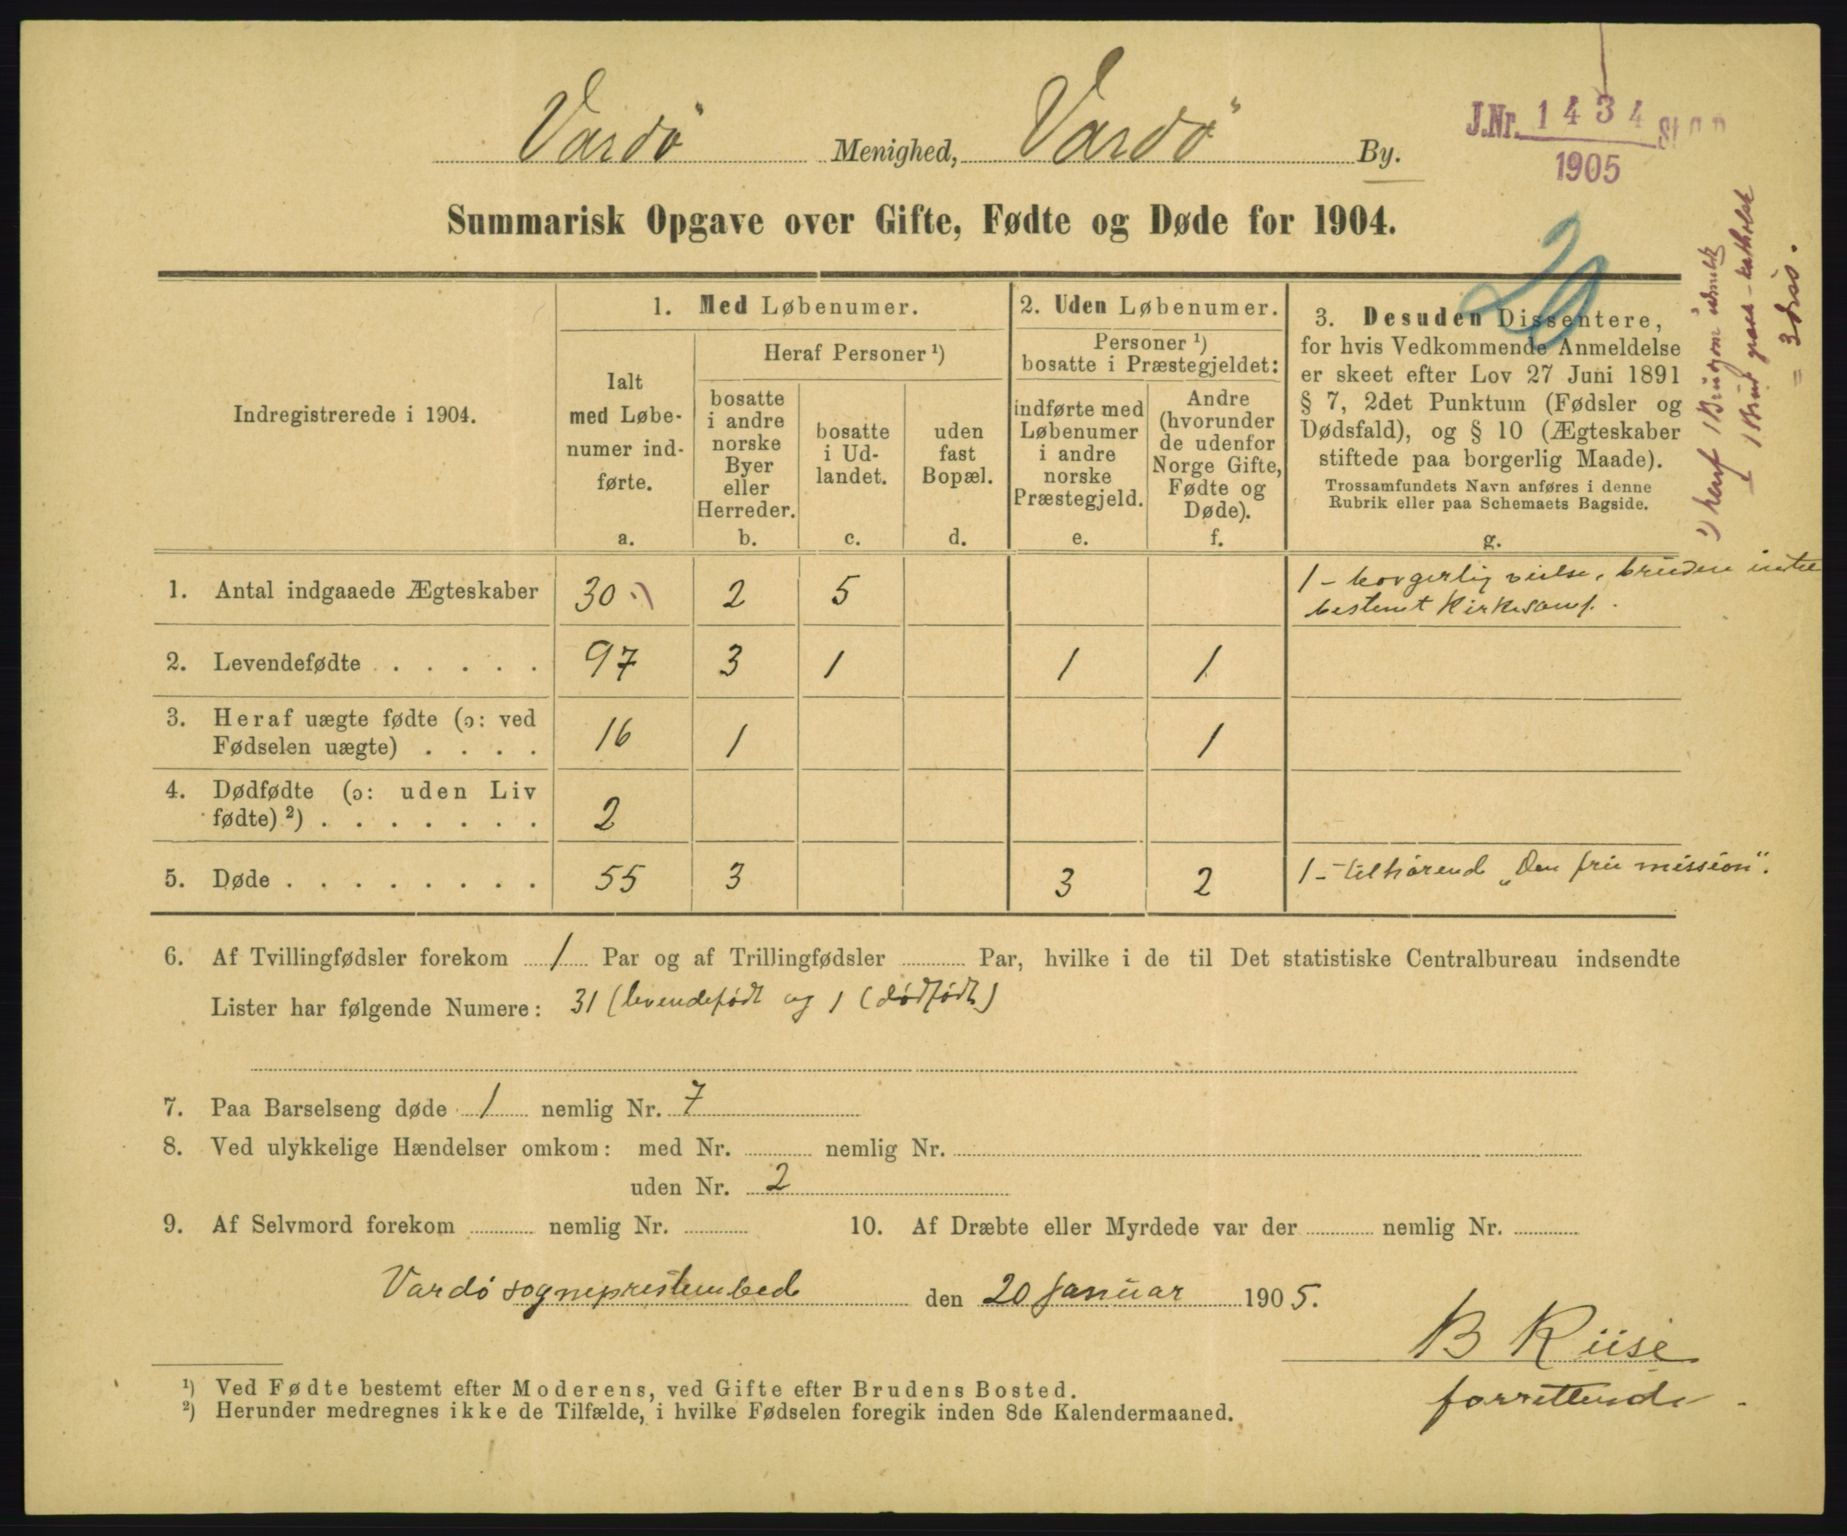 Vardö Menighed, Vardö By.
J.Nr. 1434
1905
Summarisk Opgave over Gifte, Fødte og Døde for 1904.
20
1) heraf 1 Brudgom
1 Brud græsk-katholsk
= 3 diss.
Indregistrerede i 1904.
1. Med Løbenumer.
Ialt
med Løbe-
numer ind-
førte.
a.
Heraf Personer ¹)
bosatte
i andre
norske
Byer
eller
Herreder.
b.
bosatte
i Ud-
landet.
c.
uden
fast
Bopæl.
d.
2. Uden Løbenumer.
Personer ¹)
bosatte i Præstegjeldet:
indførte med
Løbenumer
i andre
norske
Præstegjeld.
e.
Andre
(hvorunder
de udenfor
Norge Gifte,
Fødte og
Døde).
f.
3. Desuden Dissentere,
for hvis Vedkommende Anmeldelse
er skeet efter Lov 27 Juni 1891
§ 7, 2det Punktum (Fødsler og
Dødsfald), og § 10 (Ægteskaber
stiftede paa borgerlig Maade).
Trossamfundets Navn anføres i denne
Rubrik eller paa Schemaets Bagside.
g.
1. Antal indgaaede Ægteskaber 30 ¹) 2 5 1 - borgerlig vielse, bruden intet
bestemt Kirkesamf.
2. Levendefødte . . . . . 97 3 1 1 1
3. Heraf uægte fødte (ɔ: ved
Fødselen uægte) . . . . 16 1 1
4. Dødfødte (ɔ: uden Liv
fødte) ²) . . . . . . . 2
5. Døde . . . . . . . . 55 3 3 2 1 - tilhørend „Den frie mission".
6. Af Tvillingfødsler forekom 1 Par og af Trillingfødsler Par, hvilke i de til Det statistiske Centralbureau indsendte
Lister har følgende Numere: 31 (levendefödt og 1 (dödfödt)
7. Paa Barselseng døde 1 nemlig Nr. 7
8. Ved ulykkelige Hændelser omkom: med Nr. nemlig Nr.
uden Nr. 2
9. Af Selvmord forekom nemlig Nr. 10. Af Dræbte eller Myrdede var der nemlig Nr.
Vardö sogneprestembede den 20 januar 1905.
B Riise
forrettende.
¹) Ved Fødte bestemt efter Moderens, ved Gifte efter Brudens Bosted.
²) Herunder medregnes ikke de Tilfælde, i hvilke Fødselen foregik inden 8de Kalendermaaned.